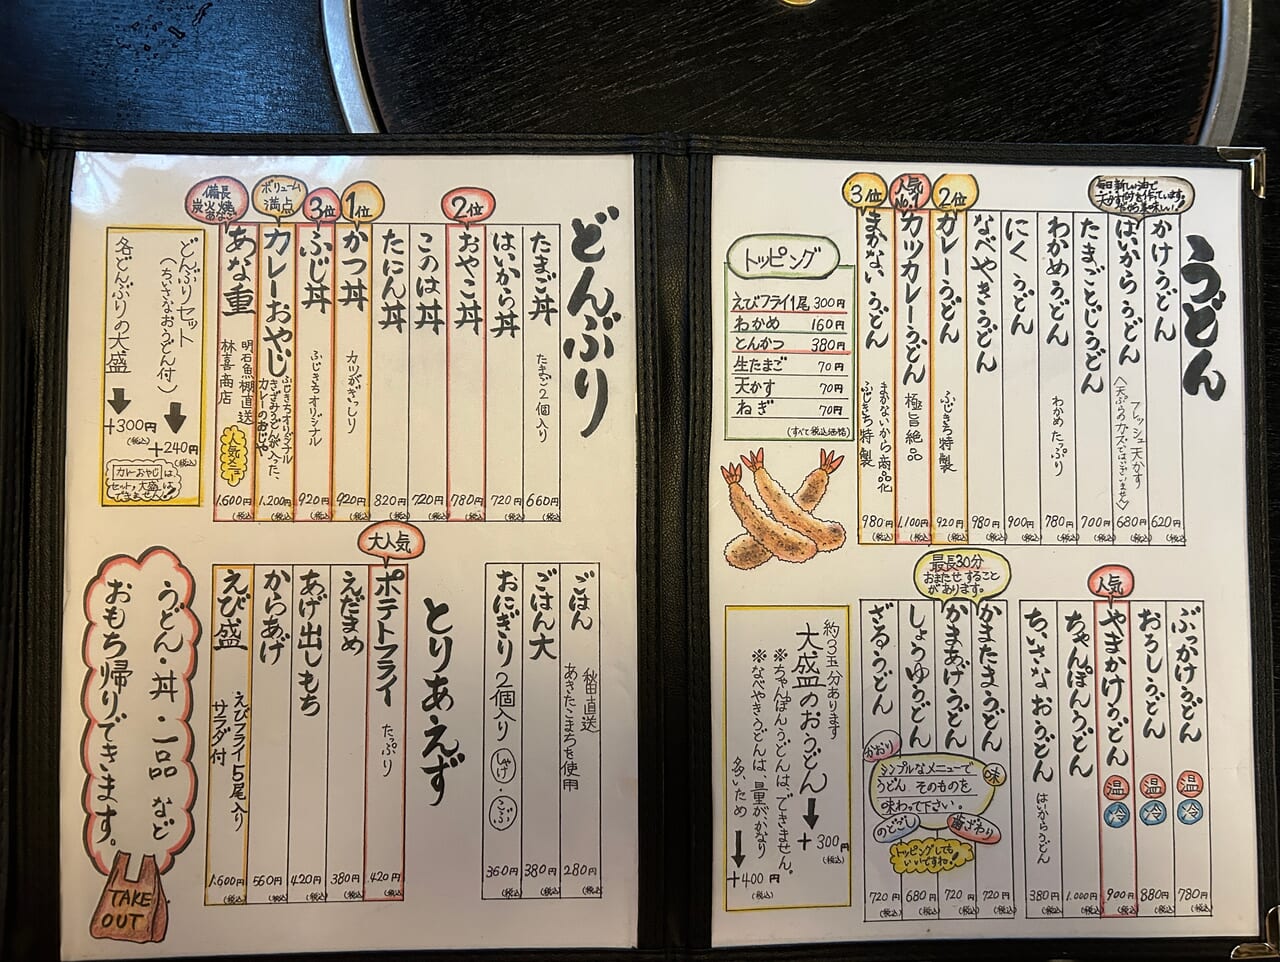 うどん
毎日新しい油で
天かすを作っています。
だから美味しい!
かけうどん 620円(税込)
はいからうどん フレッシュ天かす 680円(税込)
<天ぷらのカスではございません>
たまごとじうどん 700円(税込)
わかめうどん わかめたっぷり 780円(税込)
にくうどん 900円(税込)
なべやきうどん 980円(税込)
2位
カレーうどん ふじきち特製 920円(税込)
人気No.1
カツカレーうどん 極旨絶品 1,100円(税込)
3位
まかないうどん まかないから商品化 980円(税込)
ふじきち特製
トッピング
えびフライ1尾 300円
わかめ 160円
とんかつ 380円
生たまご 70円
天かす 70円
ねぎ 70円
(すべて税込価格)
ぶっかけうどん 温 冷 780円(税込)
おろしうどん 温 冷 880円(税込)
人気
やまかけうどん 温 冷 900円(税込)
ちゃんぽんうどん 1,000円(税込)
ちいさなおうどん はいからうどん 380円(税込)
最長30分
おまたせすること
があります。
かまたまうどん 720円(税込)
かまあげうどん 720円(税込)
しょうゆうどん 680円(税込)
ざるうどん 720円(税込)
かおり
味
シンプルなメニューで
うどんそのものを
味わって下さい。
のどごし
歯ざわり
トッピングしても
いいですね!
約3玉分あります
大盛のおうどん
+300円(税込)
※ちゃんぽんうどんは、できません。
※なべやきうどんは、量がかなり
多いため
+400円(税込)
どんぶり
たまご丼 たまご2個入り 660円(税込)
はいから丼 720円(税込)
2位
おやこ丼 780円(税込)
このは丼 720円(税込)
たにん丼 820円(税込)
1位
かつ丼 カツがぎっしり 920円(税込)
3位
ふじ丼 ふじきちオリジナル 920円(税込)
ボリューム満点
カレーおやじ ふじきちオリジナル 1,200円(税込)
きざみうどんが入った、
カレーのおじや
備長炭火焼あなご
あな重 明石魚棚直送 1,600円(税込)
林喜商店
人気メニュー
どんぶりセット
(ちいさなおうどん付)
+240円(税込)
各どんぶりの大盛
+300円(税込)
カレーおやじは
セット、大盛は
できません!
ごはん 秋田直送 280円(税込)
あきたこまちを使用
ごはん大 380円(税込)
おにぎり2個入り しゃけ・こぶ 360円(税込)
とりあえず
大人気
ポテトフライ たっぷり 420円(税込)
えだまめ 380円(税込)
あげ出しもち 420円(税込)
からあげ 560円(税込)
えび盛 えびフライ5尾入り 1,600円(税込)
サラダ付
うどん・丼・一品など
おもち帰りできます。
TAKE
OUT